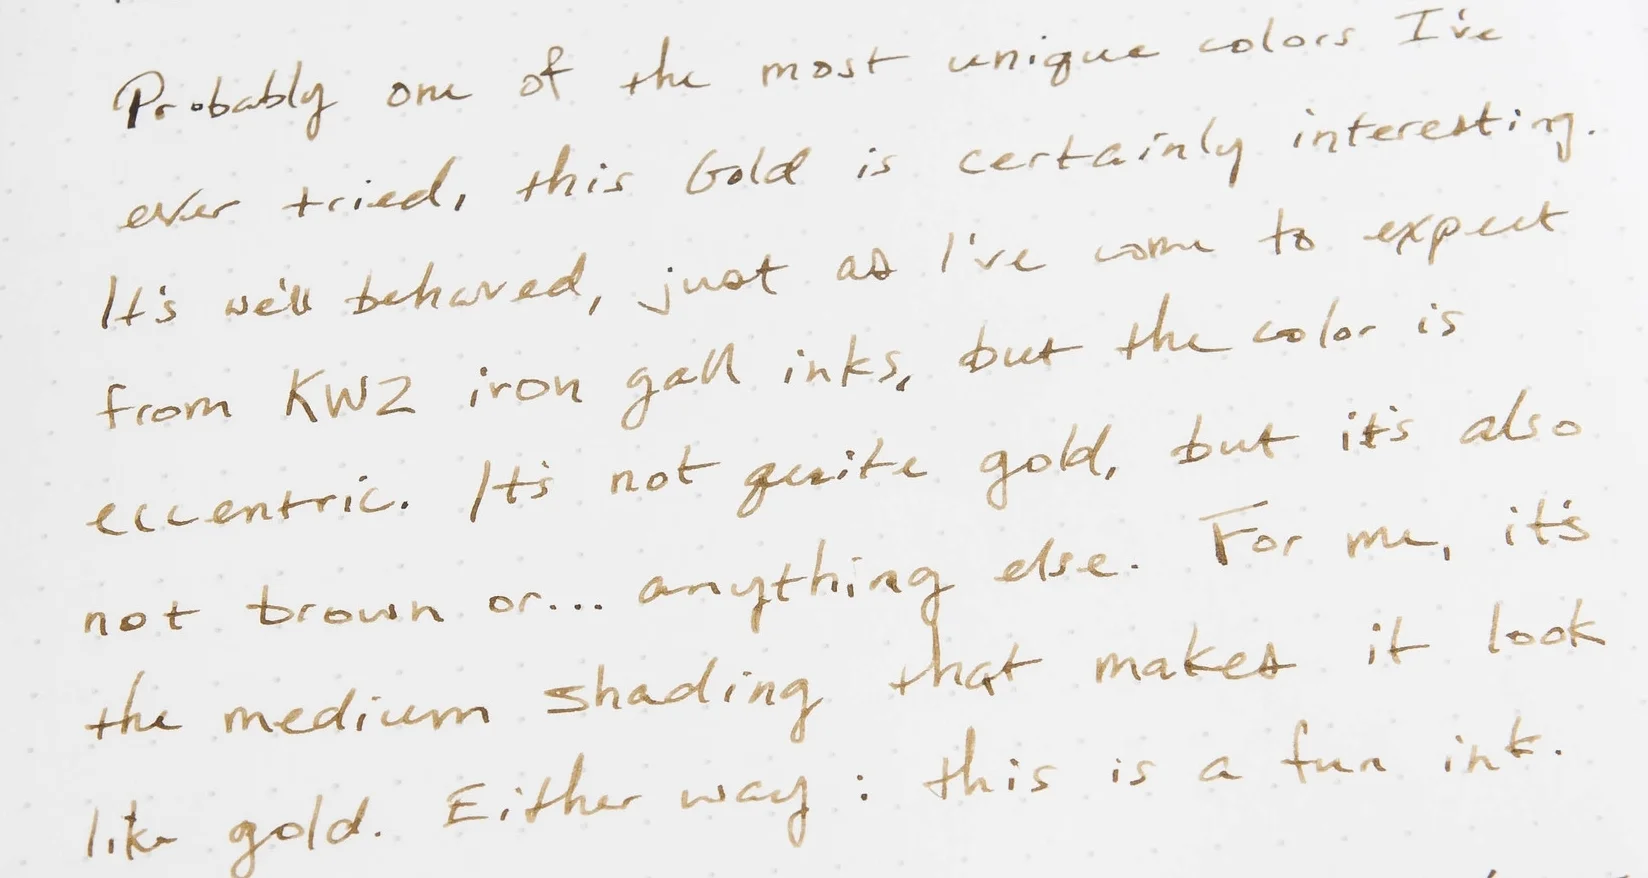 Probably one of the most unique colors I've
ever tried, this Gold is certainly interesting.
It's we'll behaved, just as I've come to expect
from KWZ iron gall inks, but the color is
eccentric. It's not quite gold, but it's also
not brown or... anything else. For me, it's
the medium shading that makes it look
like gold. Either way: this is a fun ink.